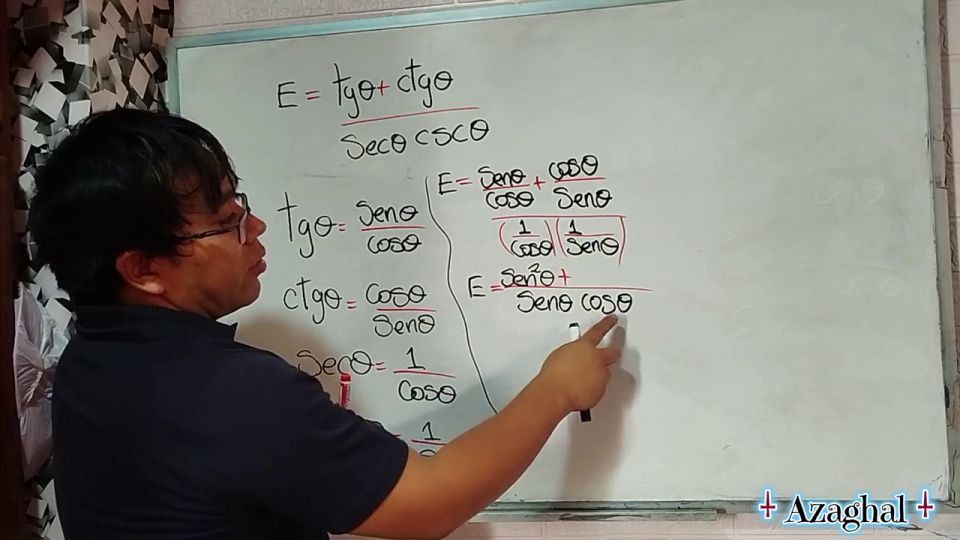 E = tgθ + ctgθ
secθ cscθ
tgθ = senθ
cosθ
ctgθ = cosθ
senθ
secθ = 1
cosθ
= 1
E = senθ + cosθ
cosθ senθ
(1) (1)
cosθ senθ
E = sen²θ +
senθ cosθ
Azaghal